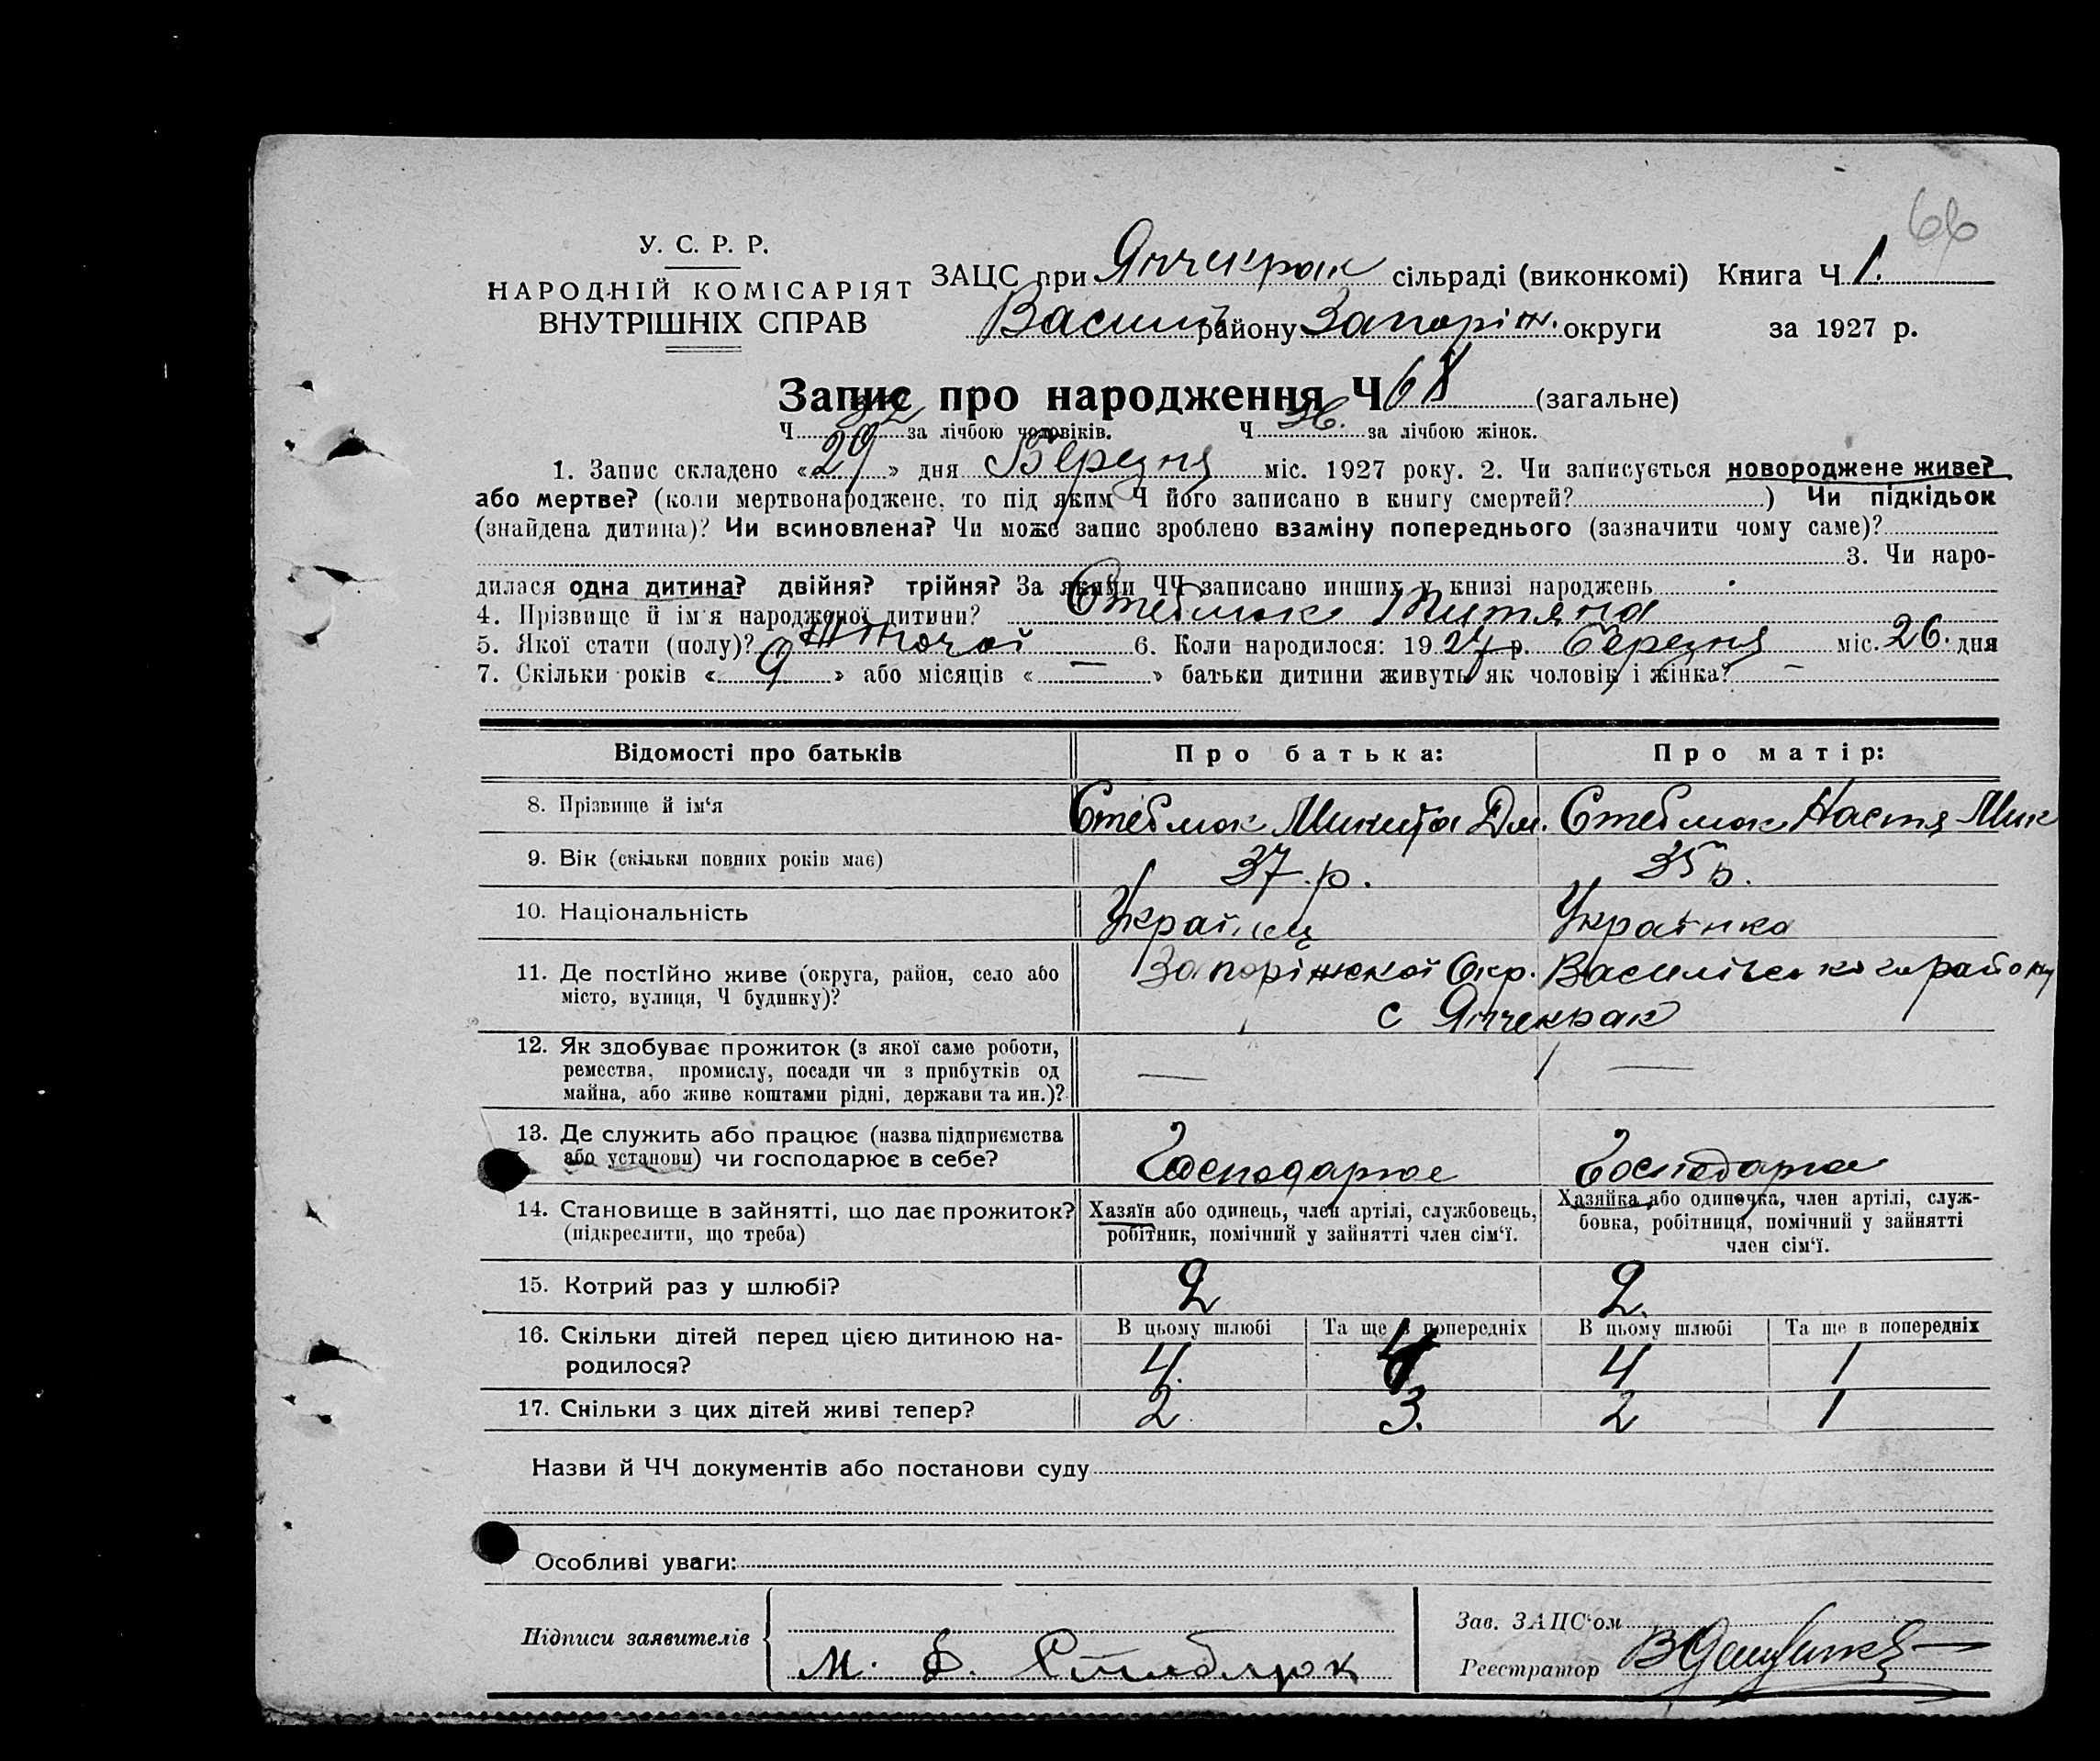 66
У. С. Р. Р.
НАРОДНІЙ КОМІСАРІЯТ
ВНУТРІШНІХ СПРАВ
ЗАЦС при Янчекрак сільраді (виконкомі) Книга Ч 1.
Василів району Запоріж. округи за 1927 р.
Запис про народження Ч 68 (загальне)
Ч 32 за лічбою чоловіків. Ч 36. за лічбою жінок.
1. Запис складено «29» дня Березня міс. 1927 року. 2. Чи записується новороджене живе?
або мертве? (коли мертвонароджене, то під яким Ч його записано в книгу смертей?) Чи підкідьок
(знайдена дитина)? Чи всиновлена? Чи може запис зроблено взаміну попереднього (зазначити чому саме)?
3. Чи наро-
дилася одна дитина? двійня? трійня? За якими ЧЧ записано инших у книзі народжень
4. Прізвище й ім'я народженої дитини? Стеблюк
5. Якої стати (полу)? Жіночої 6. Коли народилося: 1927 р. березня міс. 26. дня
7. Скільки років «9» або місяців «—» батьки дитини живуть як чоловік і жінка? —
Відомості про батьків Про батька: Про матір:
8. Прізвище й ім'я Стеблюк Микита Дм. Стеблюк Настя Мик
9. Вік (скільки повних років має) 37.р. 35 р.
10. Національність Українец Українка
11. Де постійно живе (округа, район, село або
місто, вулиця, Ч будинку)? Запоріжської Окр. Василівського району
с Янчекрак
12. Як здобуває прожиток (з якої саме роботи,
ремества, промислу, посади чи з прибутків од
майна, або живе коштами рідні, держави та ин.)? — —
13. Де служить або працює (назва підприємства
або установи) чи господарює в себе? Господарює Господарює
14. Становище в зайнятті, що дає прожиток?
(підкреслити, що треба)
Хазяїн або одинець, член артілі, службовець,
робітник, помічний у зайнятті член сім'ї.
Хазяйка або одиночка, член артілі, служ-
бовка, робітниця, помічний у зайнятті
член сім'ї.
15. Котрий раз у шлюбі? 2 2.
16. Скільки дітей перед цією дитиною на-
родилося?
В цьому шлюбі Та ще в попередніх В цьому шлюбі Та ще в попередніх
4. 4 1
17. Скільки з цих дітей живі тепер? 2. 3. 2 1
Назви й ЧЧ документів або постанови суду
Особливі уваги:
Підписи заявителів
М. Д. Стеблюк
Зав. ЗАЦС'ом
Реєстратор